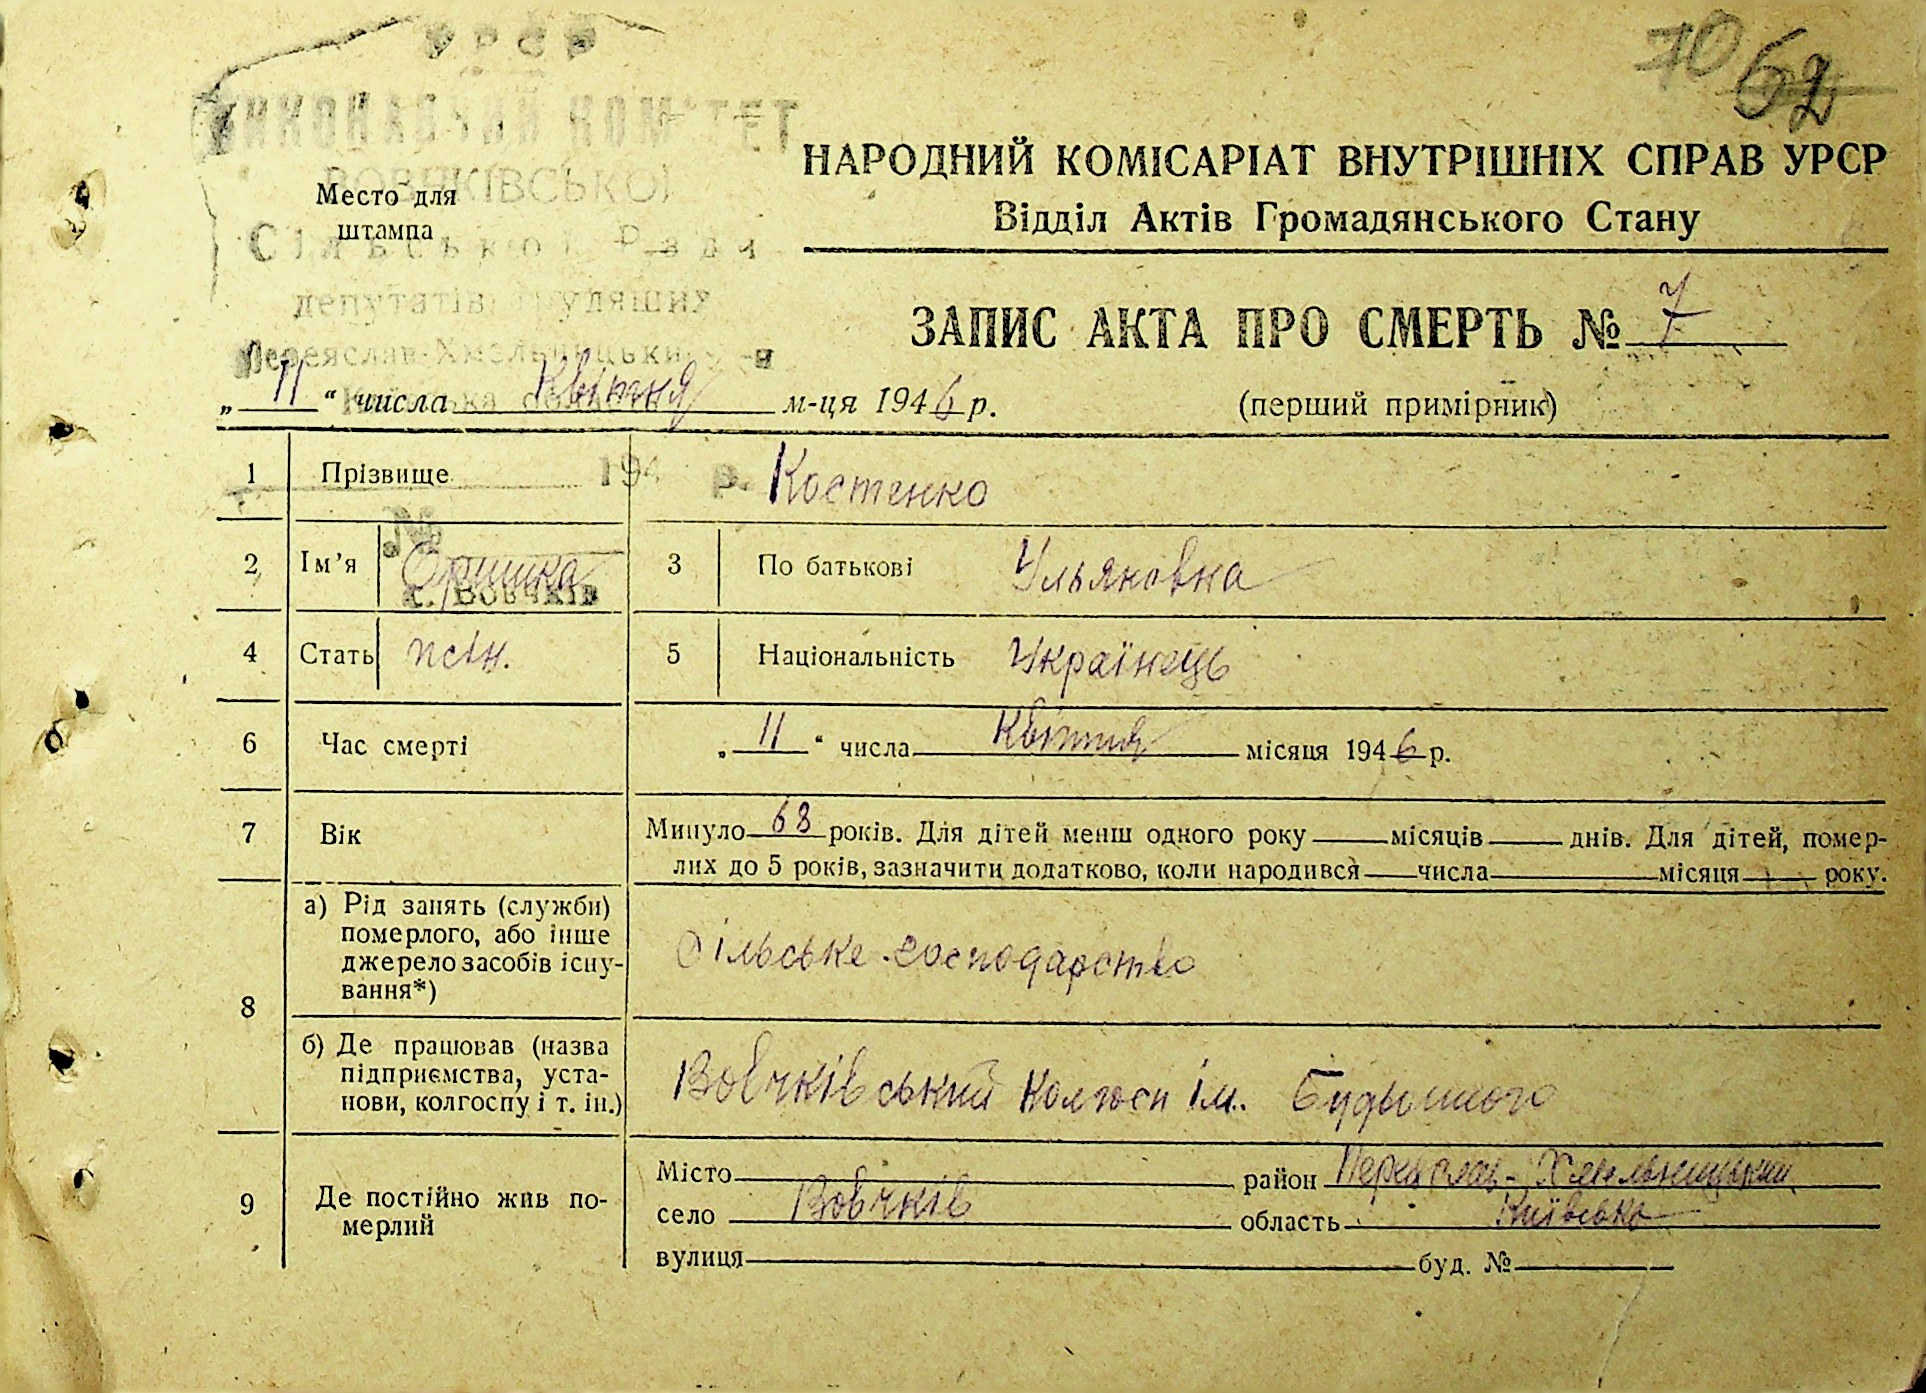 70 62
УРСР
ВИКОНАВЧИЙ КОМІТЕТ
ВОВЧКІВСЬКОЇ
Сільської Ради
депутатів трудящих
Переяслав-Хмельницький р-н
Київська область
194 р.
№
с. Вовчків
Место для
штампа
НАРОДНИЙ КОМІСАРІАТ ВНУТРІШНІХ СПРАВ УРСР
Відділ Актів Громадянського Стану
ЗАПИС АКТА ПРО СМЕРТЬ № 7
„ 11 “ числа Квітня м-ця 1946 р.
(перший примірник)
1 Прізвище Костенко
2 Ім’я Оришка 3 По батькові Ульяновна
4 Стать жін. 5 Національність Українець
6 Час смерті „ 11 “ числа Квітня місяця 1946 р.
7 Вік Минуло 68 років. Для дітей менш одного року місяців днів. Для дітей, помер-
лих до 5 років, зазначити додатково, коли народився числа місяця року.
8 а) Рід занять (служби)
померлого, або інше
джерело засобів існу-
вання*)
Сільське господарство
б) Де працював (назва
підприємства, уста-
нови, колгоспу і т. ін.)
Вовчківський колгосп ім. Будьонного
9 Де постійно жив по-
мерлий
Місто район Переяслав-Хмельницький
село Вовчків область Київська
вулиця буд. №